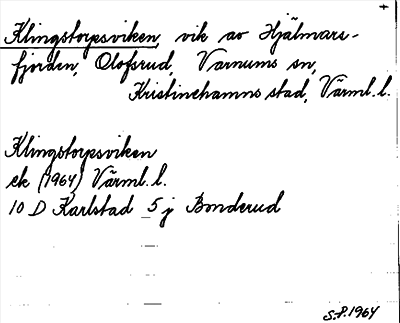 Klingstorpsviken, vik av Hjälmars-
fjorden, Olofsrud, Varnums sn,
Kristinehamns stad, Värml. l.
Klingstorpsviken
ek (1964) Värml. l.
10 D Karlstad 5 j Bonderud
S.P. 1964